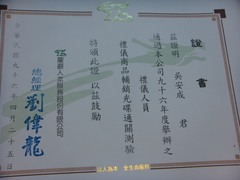 證書
茲證明 吳安成 君
通過本公司九十六年度舉辦之
禮儀人員
禮儀商品暢銷光碟通關測驗
特頒此證 以茲鼓勵
總經理 劉偉龍
中華民國九十六年四月二十五日